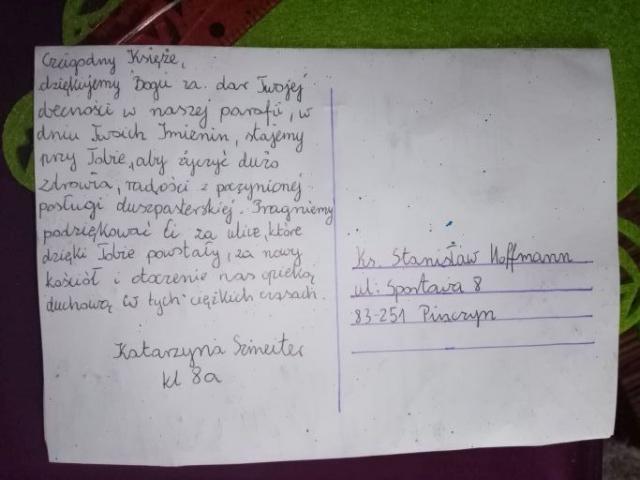 Czcigodny Księże,
dziękujemy Bogu za dar Twojej
obecności w naszej parafii, w
dniu Twoich Imienin, stajemy
przy Tobie, aby życzyć dużo
zdrowia, radości z poczynionej
posługi duszpasterskiej. Pragniemy
podziękować Ci za ulice, które
dzięki Tobie powstały, za nowy
kościół i otoczenie nas opieką
duchową w tych ciężkich czasach.
Katarzyna Szmeiter
kl 8a
Ks. Stanisław Hoffmann
ul. Sportowa 8
83-251 Pinczyn